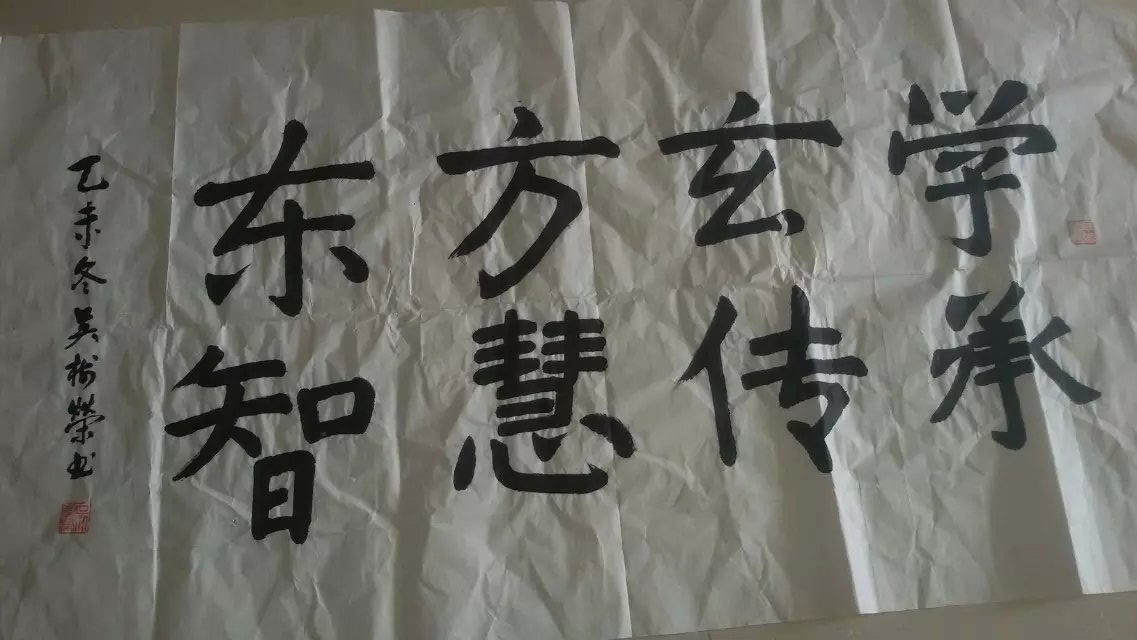 东方玄学
智慧传承
乙未冬吴树榮书